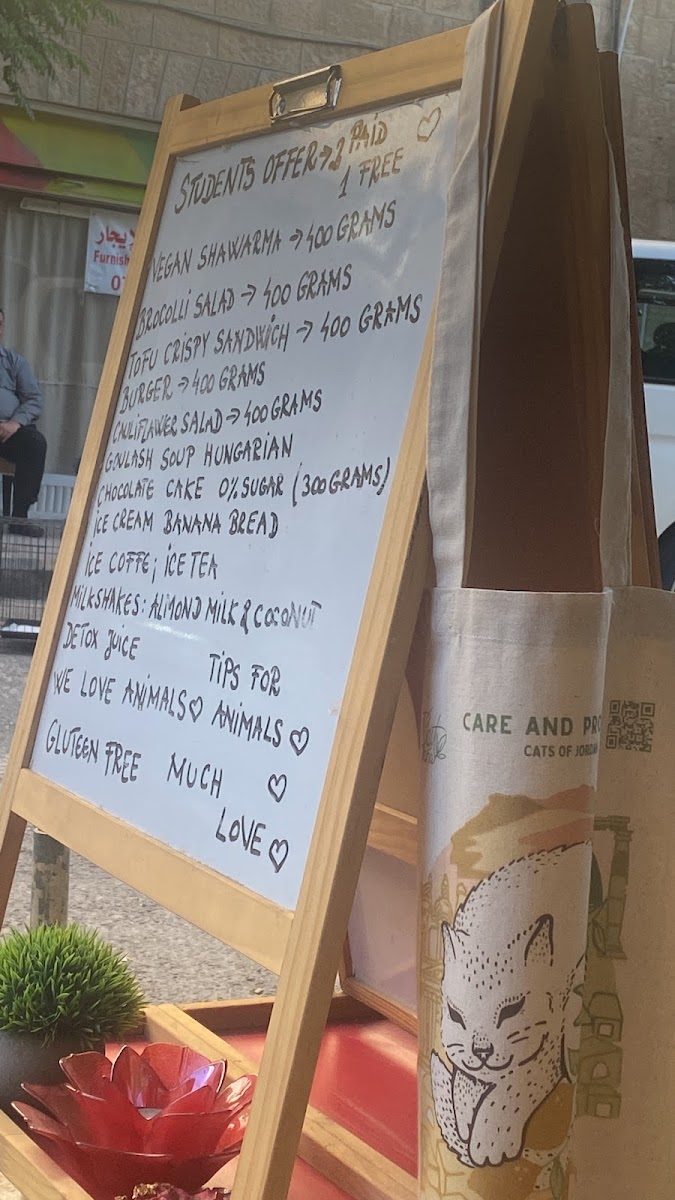 STUDENTS OFFER → 2 PAID ♡
1 FREE
VEGAN SHAWARMA → 400 GRAMS
BROCOLLI SALAD → 400 GRAMS
TOFU CRISPY SANDWICH → 400 GRAMS
BURGER → 400 GRAMS
CAULIFLAWER SALAD → 400 GRAMS
GOULASH SOUP HUNGARIAN
CHOCOLATE CAKE 0% SUGAR (300 GRAMS)
ICE CREAM BANANA BREAD
ICE COFFE; ICE TEA
MILKSHAKES: ALMOND MILK & COCONUT
DETOX JUICE
TIPS FOR
WE LOVE ANIMALS ♡ ANIMALS ♡
GLUTEEN FREE MUCH ♡
LOVE ♡
للإيجار
Furnish
0
CARE AND PRO
CATS OF JORDAN